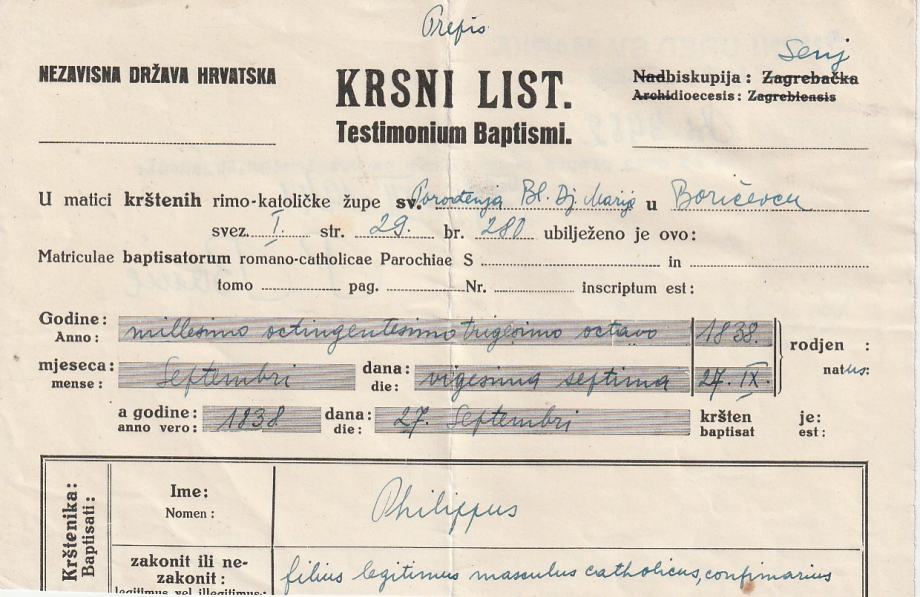 Prepis
Senj
NEZAVISNA DRŽAVA HRVATSKA
KRSNI LIST.
Testimonium Baptismi.
Nadbiskupija : Zagrebačka
Archidioecesis : Zagrebiensis
U matici krštenih rimo-katoličke župe sv. Porođenja Bl. Dj. Marije u Boričevcu
svez. I. str. 29. br. 280 ubilježeno je ovo:
Matriculae baptisatorum romano-catholicae Parochiae S in
tomo pag. Nr. inscriptum est:
Godine: millesimo octingentesimo trigesimo octavo 1838. rodjen :
Anno: natus:
mjeseca: Septembri dana: vigesima septima 27. IX.
mense: die:
a godine: 1838 dana: 27. Septembri kršten je:
anno vero: die: baptisat est:
Krštenika:
Baptisati:
Ime: Philippus
Nomen:
zakonit ili ne-
zakonit: filius legitimus masculus catholicus, confinarius
legitimus vel illegitimus: